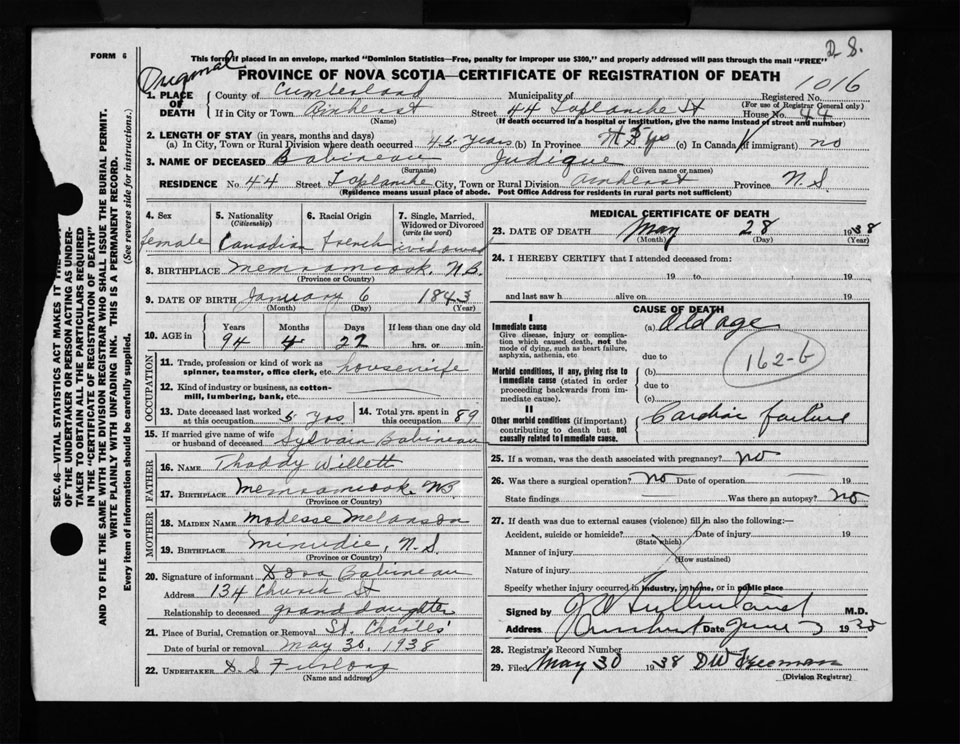 D S.
FORM 6
This form if placed in an envelope, marked "Dominion Statistics—Free, penalty for improper use $300," and properly addressed will pass through the mail "FREE"
Original
PROVINCE OF NOVA SCOTIA—CERTIFICATE OF REGISTRATION OF DEATH
1016
1. PLACE OF DEATH
County of Cumberland Municipality of Registered No.
(For use of Registrar General only)
If in City or Town Amherst Street 44 Laplanche St House No. 44
(Name) (If death occurred in a hospital or institution, give the name instead of street and number)
2. LENGTH OF STAY (in years, months and days)
(a) In City, Town or Rural Division where death occurred 45 years (b) In Province (c) In Canada (if immigrant) no
3. NAME OF DECEASED Babineau Judique
(Surname) (Given name or names)
RESIDENCE No. 44 Street Laplanche City, Town or Rural Division Amherst Province N.S.
(Residence means usual place of abode. Post Office Address for residents in rural parts not sufficient)
4. Sex
female
5. Nationality
(Citizenship)
Canadian
6. Racial Origin
French
7. Single, Married, Widowed or Divorced
(write the word)
widowed
8. BIRTHPLACE Memramcook, N.B.
(Province or Country)
9. DATE OF BIRTH January 6 1843
(Month) (Day) (Year)
10. AGE in
Years Months Days If less than one day old
94 4 22 hrs. or min.
OCCUPATION
11. Trade, profession or kind of work as
spinner, teamster, office clerk, etc. housewife
12. Kind of industry or business, as cotton-
mill, lumbering, bank, etc.
13. Date deceased last worked
at this occupation 5 yrs
14. Total yrs. spent in
this occupation 89
15. If married give name of wife
or husband of deceased Sylvain Babineau
FATHER
16. NAME Thaddy Willett
17. BIRTHPLACE Memramcook, NB.
(Province or Country)
MOTHER
18. MAIDEN NAME Modesse Melanson
19. BIRTHPLACE Minudie, N.S.
(Province or Country)
20. Signature of informant Dora Babineau
Address 134 Church St
Relationship to deceased grand daughter
21. Place of Burial, Cremation or Removal St. Charles'
Date of burial or removal May 30, 1938
22. UNDERTAKER D. S. Furlong
(Name and address)
MEDICAL CERTIFICATE OF DEATH
23. DATE OF DEATH May 28 1938
(Month) (Day) (Year)
24. I HEREBY CERTIFY that I attended deceased from:
19 to 19
and last saw h alive on 19
CAUSE OF DEATH
I
Immediate cause
Give disease, injury or complica-
tion which caused death, not the
mode of dying, such as heart failure,
asphyxia, asthenia, etc
(a) Old age
due to
162-b
Morbid conditions, if any, giving rise to
immediate cause (stated in order
proceeding backwards from im-
mediate cause).
(b)
due to
(c)
II
Other morbid conditions (if important)
contributing to death but not
causally related to immediate cause.
Cardiac failure
25. If a woman, was the death associated with pregnancy? no
26. Was there a surgical operation? No Date of operation 19
State findings Was there an autopsy? No
27. If death was due to external causes (violence) fill in also the following:—
Accident, suicide or homicide? Date of injury 19
(State which)
Manner of injury
(How sustained)
Nature of injury
Specify whether injury occurred in industry, in home, or in public place
Signed by M.D.
Address Amherst Date June 19
28. Registrar's Record Number
29. Filed May 30 1938 DW Freeman
(Division Registrar)
SEC. 46—VITAL STATISTICS ACT MAKES IT THE
OF THE UNDERTAKER OR PERSON ACTING AS UNDER-
TAKER TO OBTAIN ALL THE PARTICULARS REQUIRED
IN THE "CERTIFICATE OF REGISTRATION OF DEATH"
AND TO FILE THE SAME WITH THE DIVISION REGISTRAR WHO SHALL ISSUE THE BURIAL PERMIT.
WRITE PLAINLY WITH UNFADING INK. THIS IS A PERMANENT RECORD.
Every item of information should be carefully supplied. (See reverse side for instructions.)